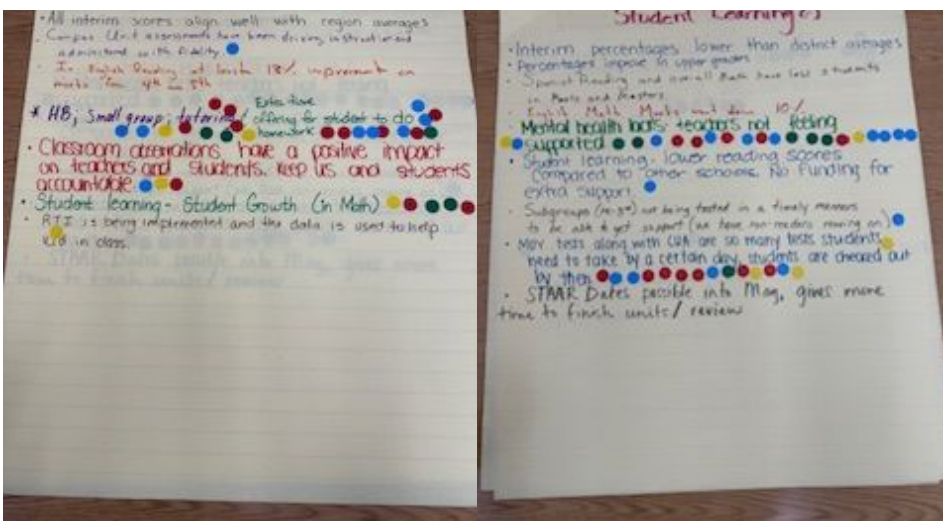 • All interim scores align well with region averages
• Campus Unit assessments have been driving instruction and
administered with fidelity
• In English Reading at least 13% improvement on
* HB; small group; tutoring / Extra time
offering for student to do
homework
• Classroom observations have a positive impact
on teachers and students. Keep us and students
accountable.
• Student learning - Student Growth (in Math)
• RTI is being implemented and the data is used to help
kid in class.
Student Learning
• Interim percentages lower than district averages
• Percentages improve in upper grades
• Spanish Reading and overall Math have less students
in Meets and Masters
• English Math Meets went down 10%
• Mental health hars- teachers not feeling
supported
• Student learning- lower reading scores
compared to other schools. No Funding for
extra support.
• Subgroups not being tested in a timely manner
to be able to get support (we have non-medins moving on)
• MOY tests along with CUA are so many tests students
need to take by a certain day, students are checked out
by then
• STAAR Dates possible into May, gives more
time to finish units/ review